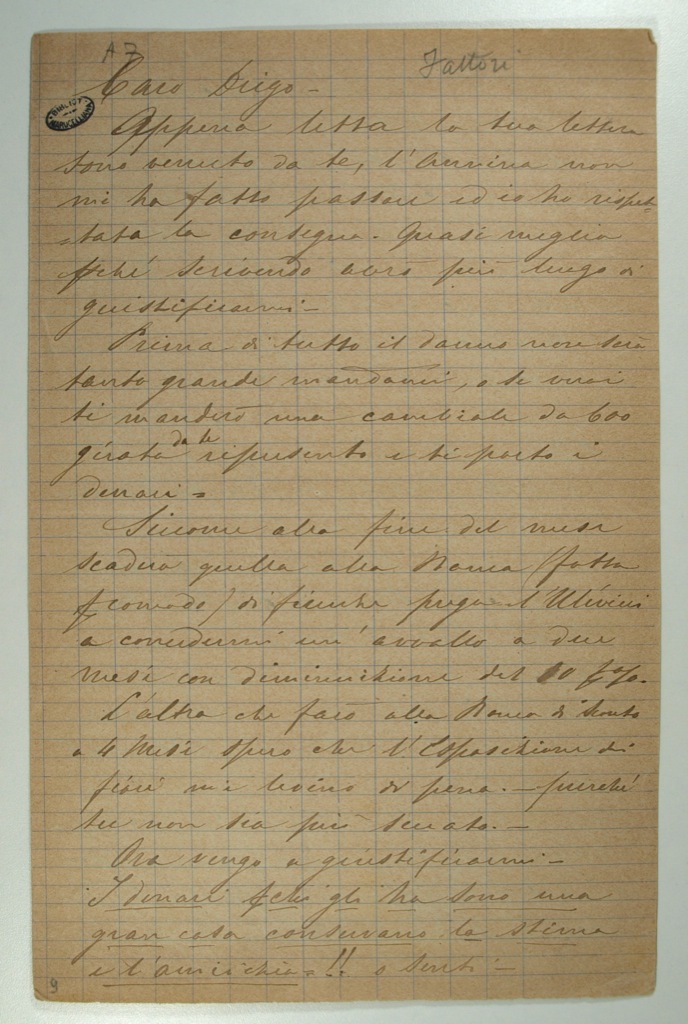 A 7
Fattori
Caro Diego -
Appena letta la tua lettera
sono venuto da te, l'Annina non
mi ha fatto passare ed io ho rispet-
-tata la consegna. Quasi meglio
pché scrivendo avrò più luogo di
giustificarmi -
Prima di tutto il danno non sarà
tanto grande mandami, o se vuoi
ti manderò una cambiale da 600
girata da te ripresento e ti porto i
denari =
Siccome alla fine del mese
scadeva quella alla Banca (fatta
comodo) di Firenze prega l'Ulivini
a concedermi un' avvallo a due
mesi con diminuzione del 10 p%.
L'altra che farò alla Banca di Sconto
a 4 mesi spero che l'Esposizione di
fiori mi levino di pena. - purché
tu non sia più seccato. -
Ora vengo a giustificarmi -
I denari pchi gli ha sono una
gran cosa conservano la stima
e l'amicizia = !! o senti -
9